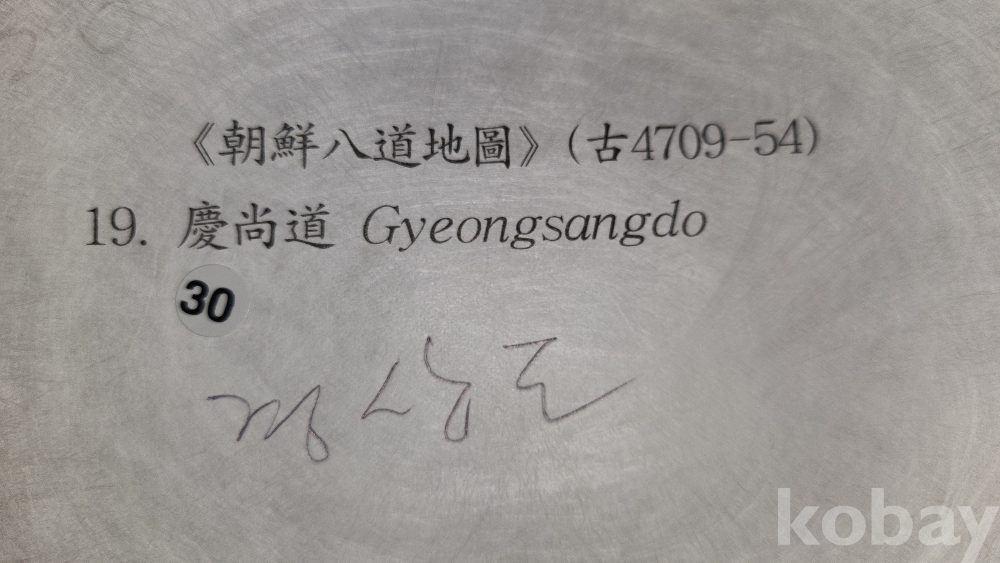 《朝鮮八道地圖》(古4709-54)
19. 慶尚道 Gyeongsangdo
30
경상도
kobay